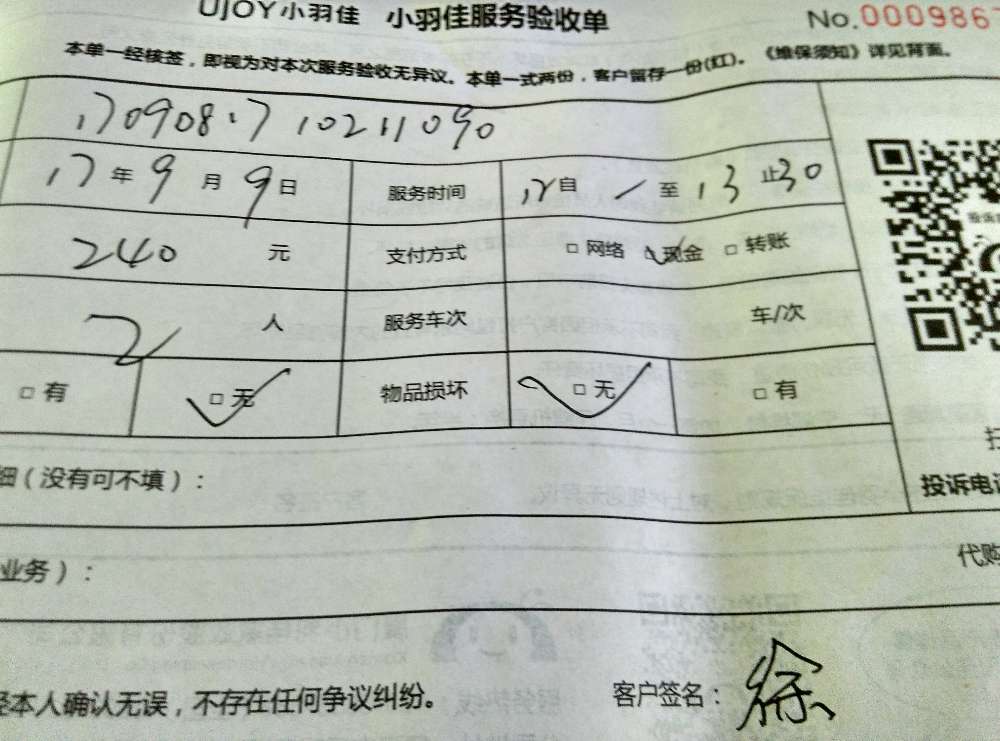 UJOY小羽佳 小羽佳服务验收单 No.000986
本单一经核签，即视为对本次服务验收无异议。本单一式两份，客户留存一份(红)。《维保须知》详见背面。
17090817102111090
17年9月9日 服务时间 12自 至13止30
240元 支付方式 □网络 ☑现金 □转账
2人 服务车次 车/次
□有 ☑无 物品损坏 ☑无 □有
细（没有可不填）：
投诉电
业务）：
代购
经本人确认无误，不存在任何争议纠纷。 客户签名：徐